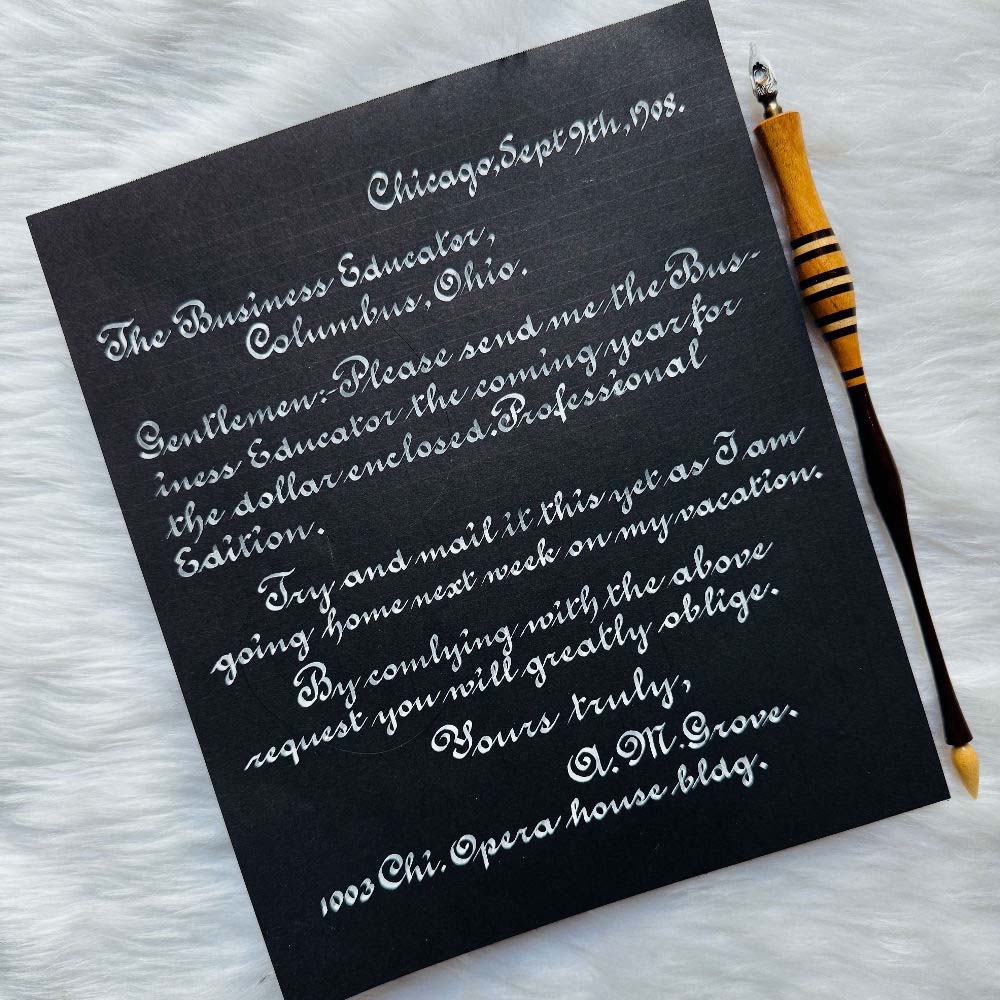 Chicago, Sept 9th, 1908.
The Business Educator,
Columbus, Ohio.
Gentlemen:-Please send me the Bus-
iness Educator the coming year for
the dollar enclosed. Professional
Edition.
Try and mail it this yet as I am
going home next week on my vacation.
By comlying with the above
request you will greatly oblige.
Yours truly,
A. M. Grove.
1003 Chi. Opera house bldg.